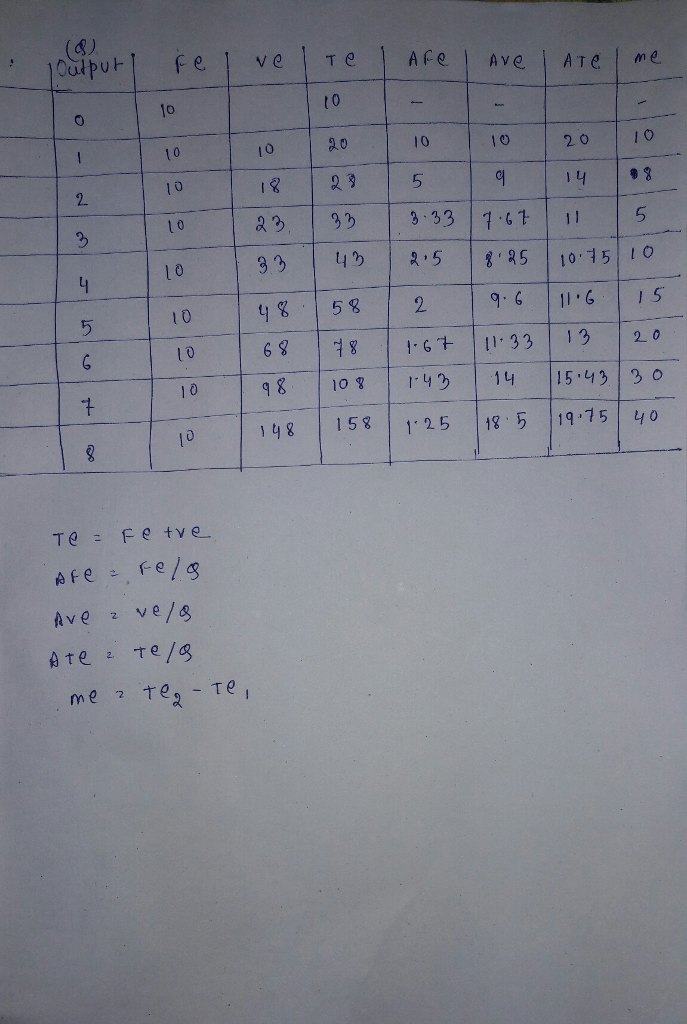 (Q)
: Output | Fe | ve | Te | AFe | Ave | ATe | me
0 | 10 | | 10 | - | - | | -
1 | 10 | 10 | 20 | 10 | 10 | 20 | 10
2 | 10 | 18 | 28 | 5 | 9 | 14 | 8
3 | 10 | 23 | 33 | 3.33 | 7.67 | 11 | 5
4 | 10 | 33 | 43 | 2.5 | 8.25 | 10.75 | 10
5 | 10 | 48 | 58 | 2 | 9.6 | 11.6 | 15
6 | 10 | 68 | 78 | 1.67 | 11.33 | 13 | 20
7 | 10 | 98 | 108 | 1.43 | 14 | 15.43 | 30
8 | 10 | 148 | 158 | 1.25 | 18.5 | 19.75 | 40
Te = Fe + ve
AFe = Fe/Q
Ave = ve/Q
ATe = Te/Q
me = Te2 - Te1